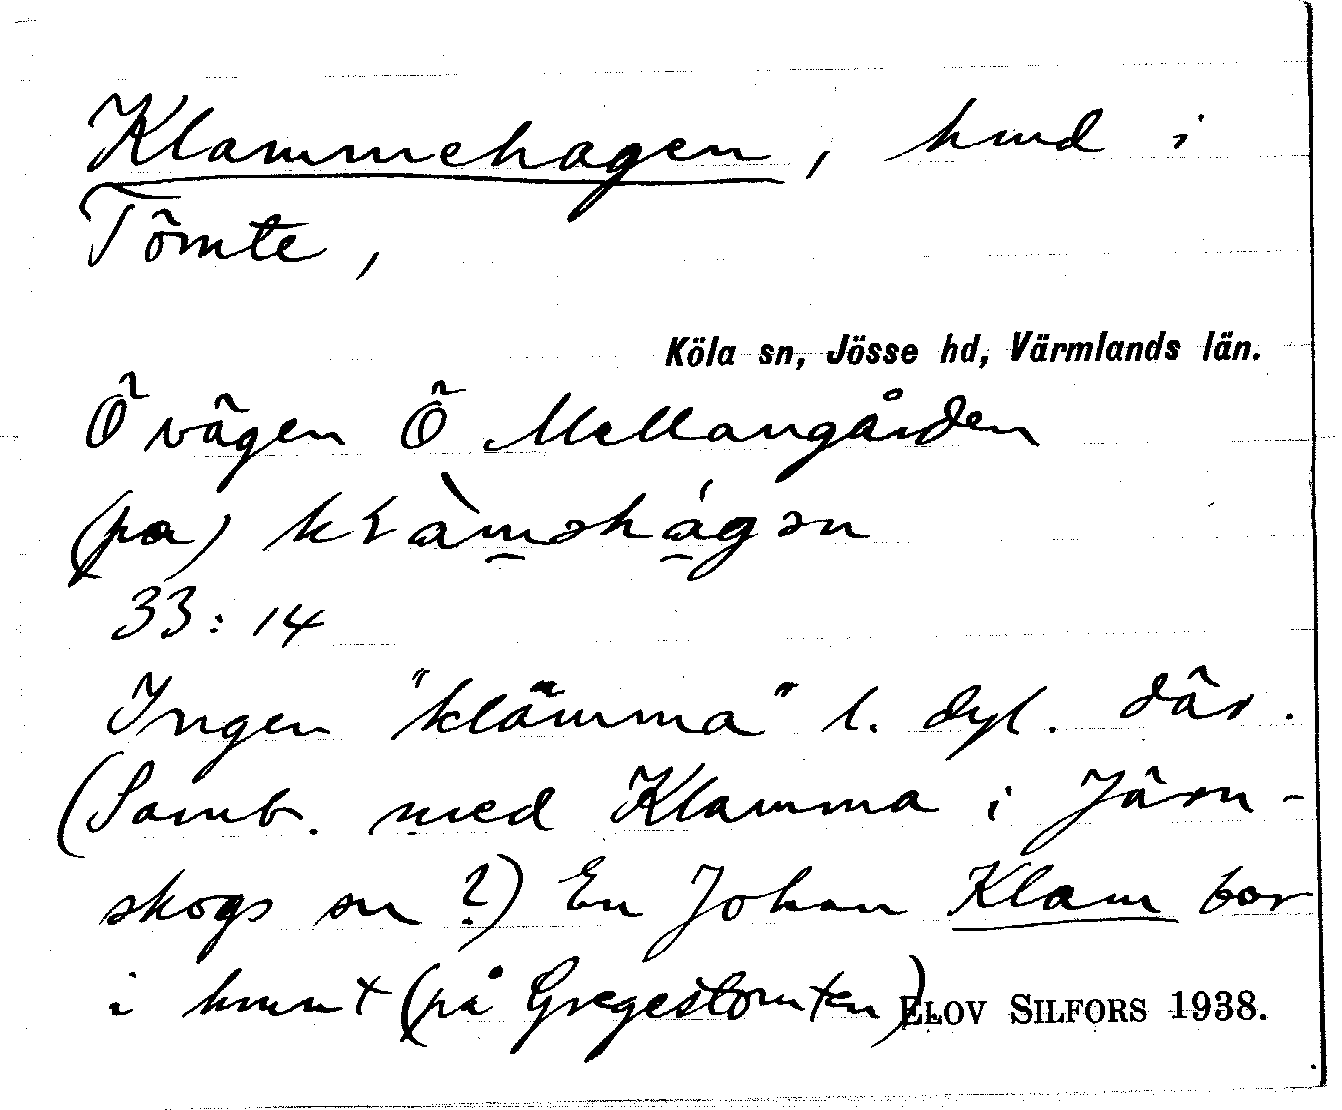 Klammehagen, hmd i
Tömte,
Köla sn, Jösse hd, Värmlands län.
Ö vägen Ö Mellangården
(pa)
33:14
Ingen "klämma" l. dyl. där.
(Samb. med Klamma i Järn-
skogs sn?) En Johan Klam bor
i hmnt (på Gregestomten)
ELOV SILFORS 1938.